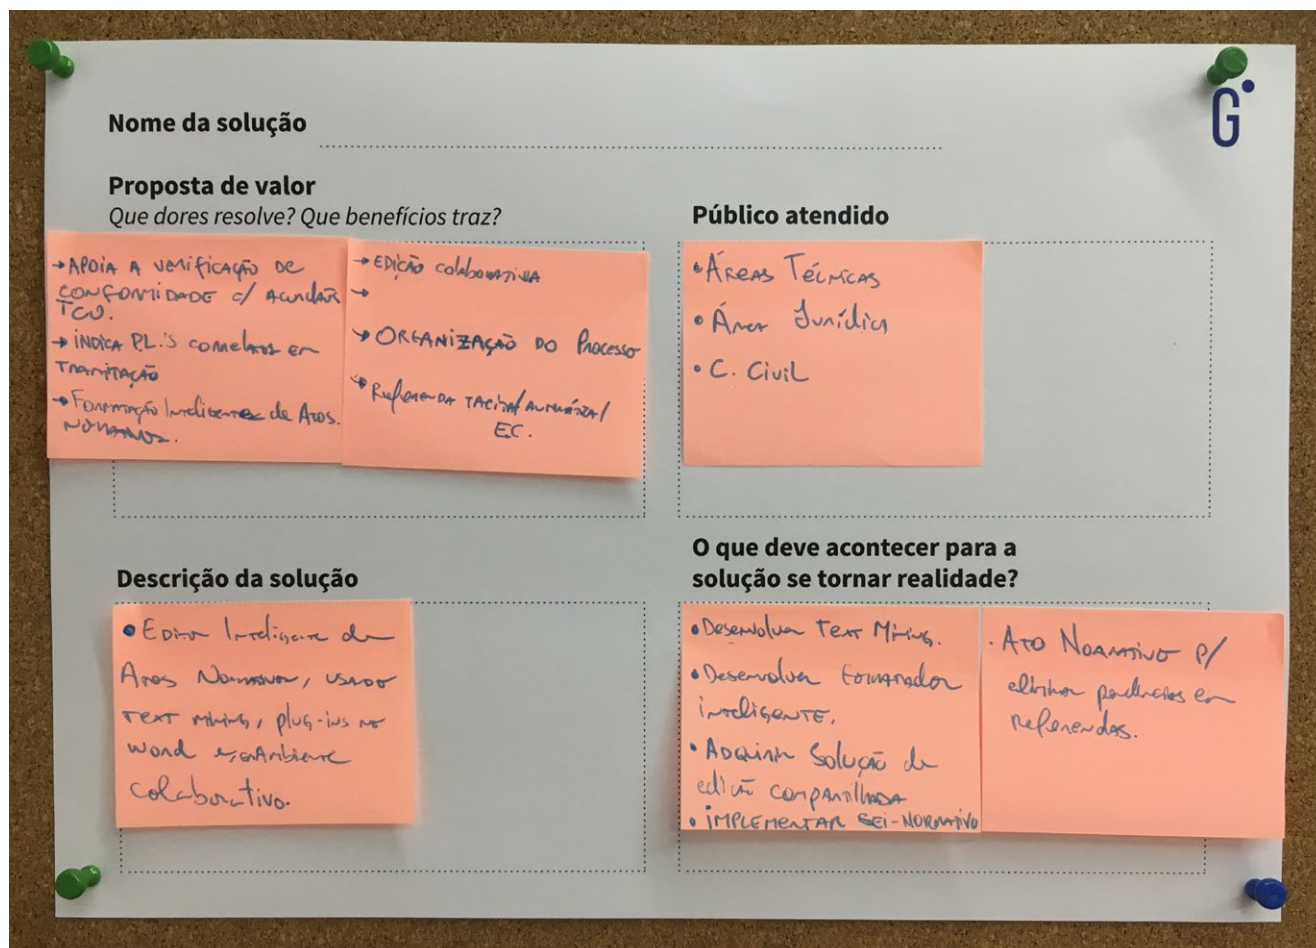 G
Nome da solução
Proposta de valor
Que dores resolve? Que benefícios traz?
→ APOIA A VERIFICAÇÃO DE
CONFORMIDADE C/ ACÓRDÃOS
TCU.
→ INDICA P.L.'S CORRELATOS EM
TRAMITAÇÃO
→ Formatação Inteligente de Atos.
NORMATIVOS.
→ EDIÇÃO COLABORATIVA
→
→ ORGANIZAÇÃO DO PROCESSO
→ Referenda TÁCITA/
E.C.
Público atendido
• ÁREAS TÉCNICAS
• Área Jurídica
• C. CIVIL
Descrição da solução
• Editor Inteligente de
Atos Normativos, USADO
TEXT MINING, plug-ins no
WORD Ambiente
colaborativo.
O que deve acontecer para a
solução se tornar realidade?
• Desenvolver Text Mining.
• Desenvolver formatador
inteligente.
• Adquirir Solução de
edição compartilhada
• IMPLEMENTAR SEI-NORMATIVO
• ATO NORMATIVO P/
eliminar pendências em
referendas.